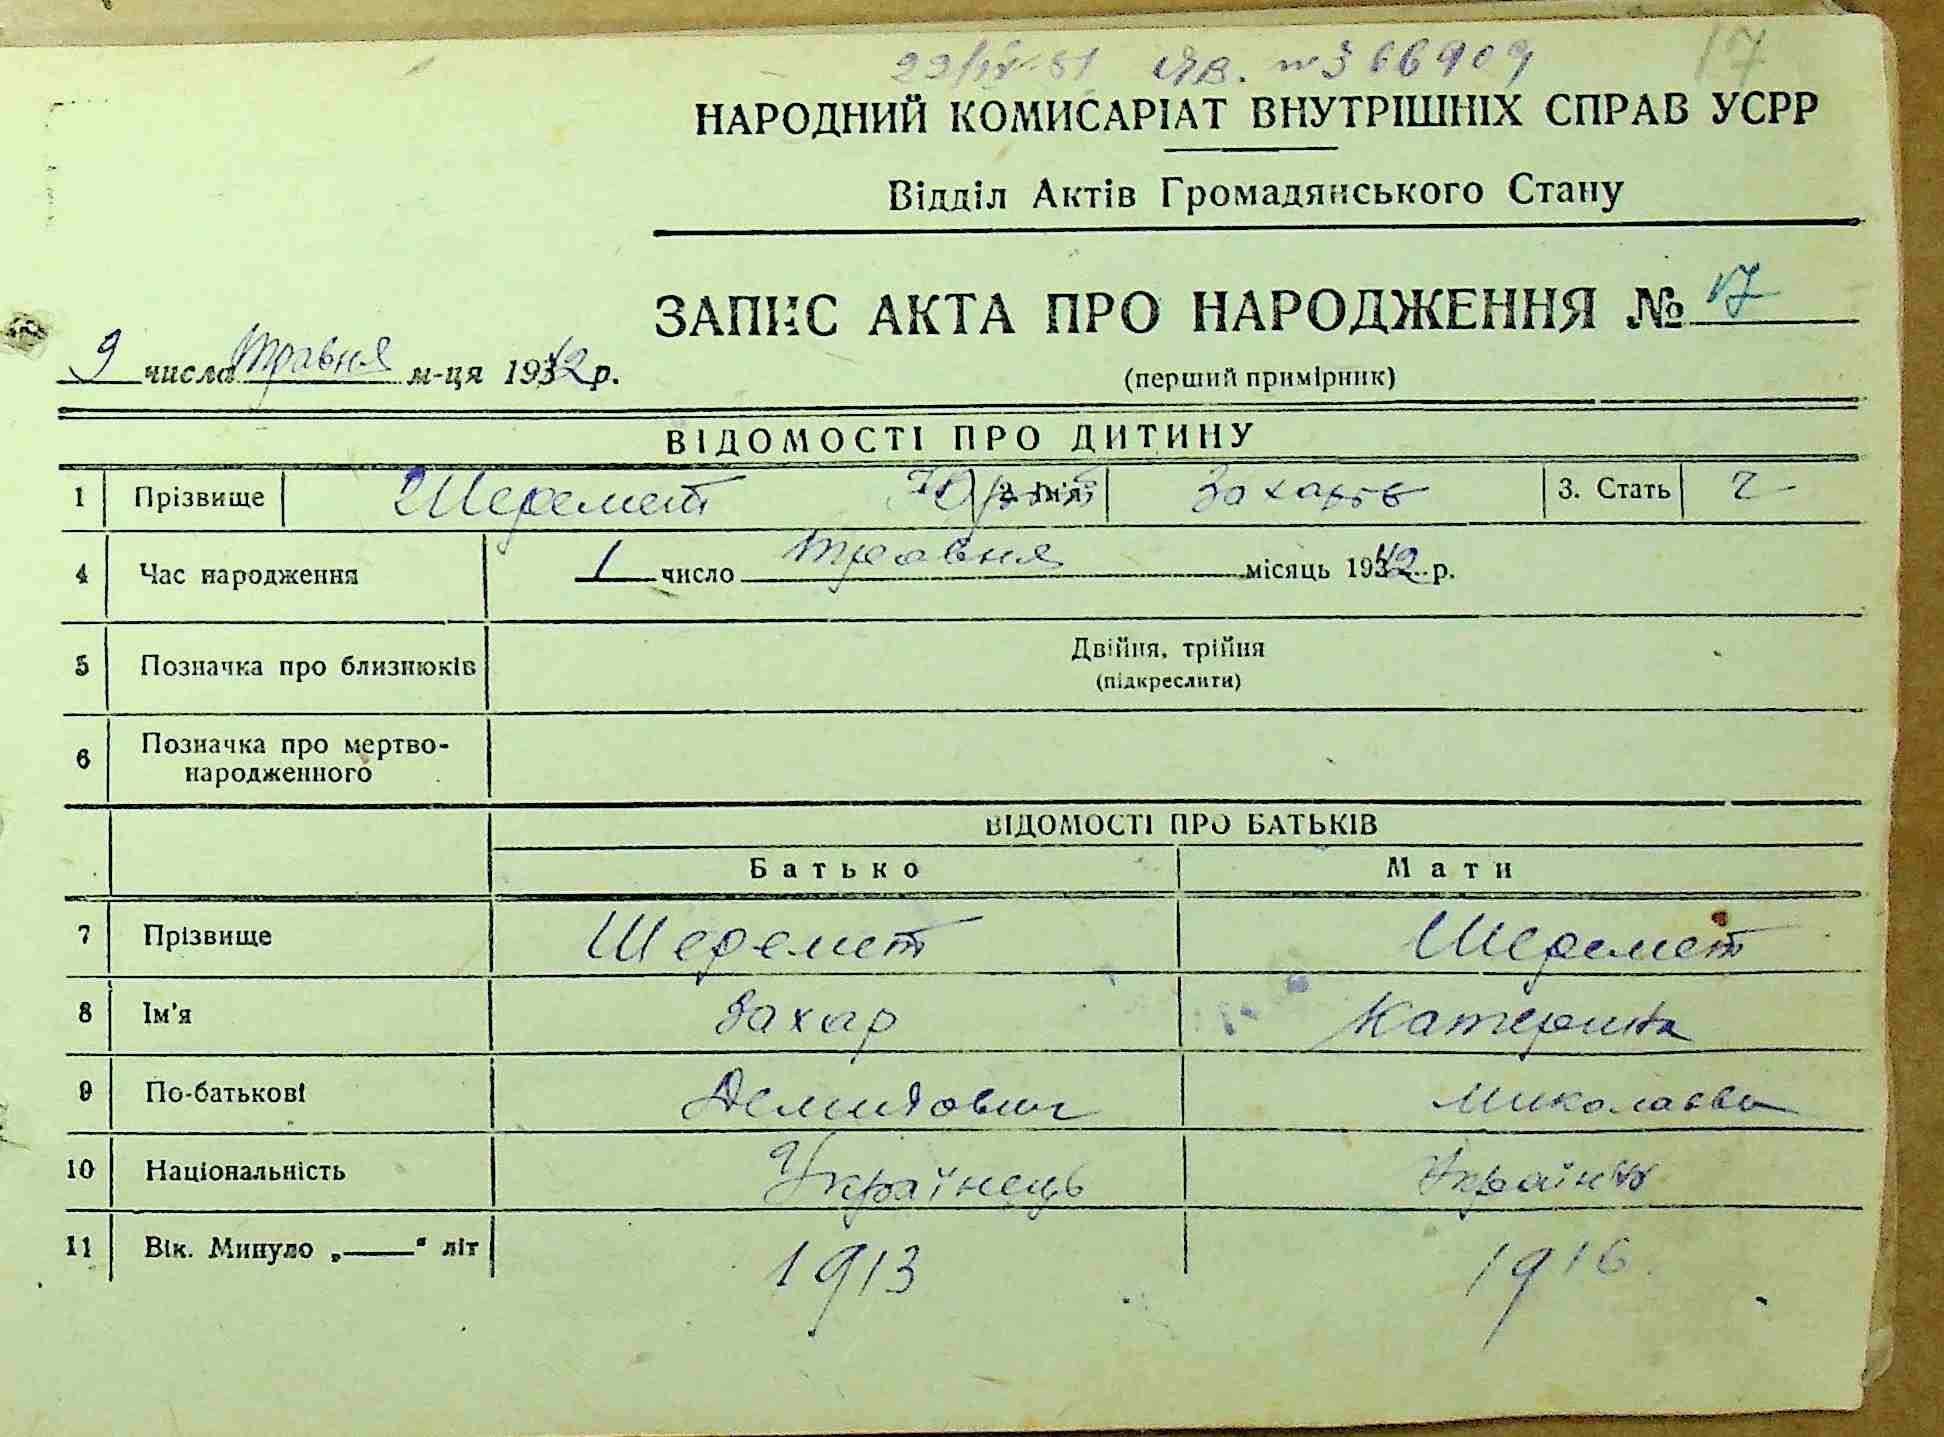 23/IV-51 ЯВ. № 366909 17
НАРОДНИЙ КОМИСАРІАТ ВНУТРІШНІХ СПРАВ УСРР
Відділ Актів Громадянського Стану
ЗАПИС АКТА ПРО НАРОДЖЕННЯ № 17
9 числа травня м-ця 1942 р.
(перший примірник)
ВІДОМОСТІ ПРО ДИТИНУ
1 Прізвище Шеремет Юрій 2. Ім'я Захаров 3. Стать ч
4 Час народження 1 число травня місяць 1942 р.
5 Позначка про близнюків Двійня, трійня
(підкреслити)
6 Позначка про мертво-
народженного
ВІДОМОСТІ ПРО БАТЬКІВ
Батько Мати
7 Прізвище Шеремет Шеремет
8 Ім'я Захар Катерина
9 По-батькові Демидович Миколаєвн
10 Національність Українець Українка
11 Вік. Минуло „——“ літ 1913 1916